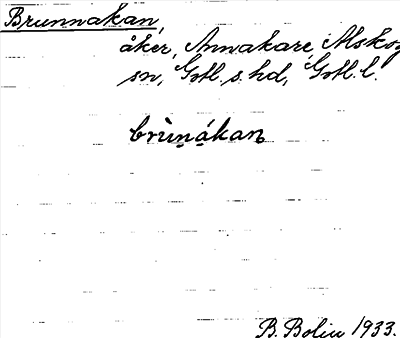 Brunnakan,
åker, Annakare, Alskog
sn, Gotl. s. hd, Gotl. l.
brùn̥ákan
B. Bolin 1933.